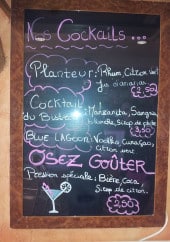 Nos Cocktails...
Planteur: Rhum, Citron vert
Jus d'ananas
3,50
Cocktail : Manzanita, Sangria
du blanche, Sirop de
3,50
Blue Lagoon: Vodka, Curaçao,
Citron vert
OSEZ GOÛTER
Pression spéciale: Bière, Coca,
Sirop de citron.
2,50